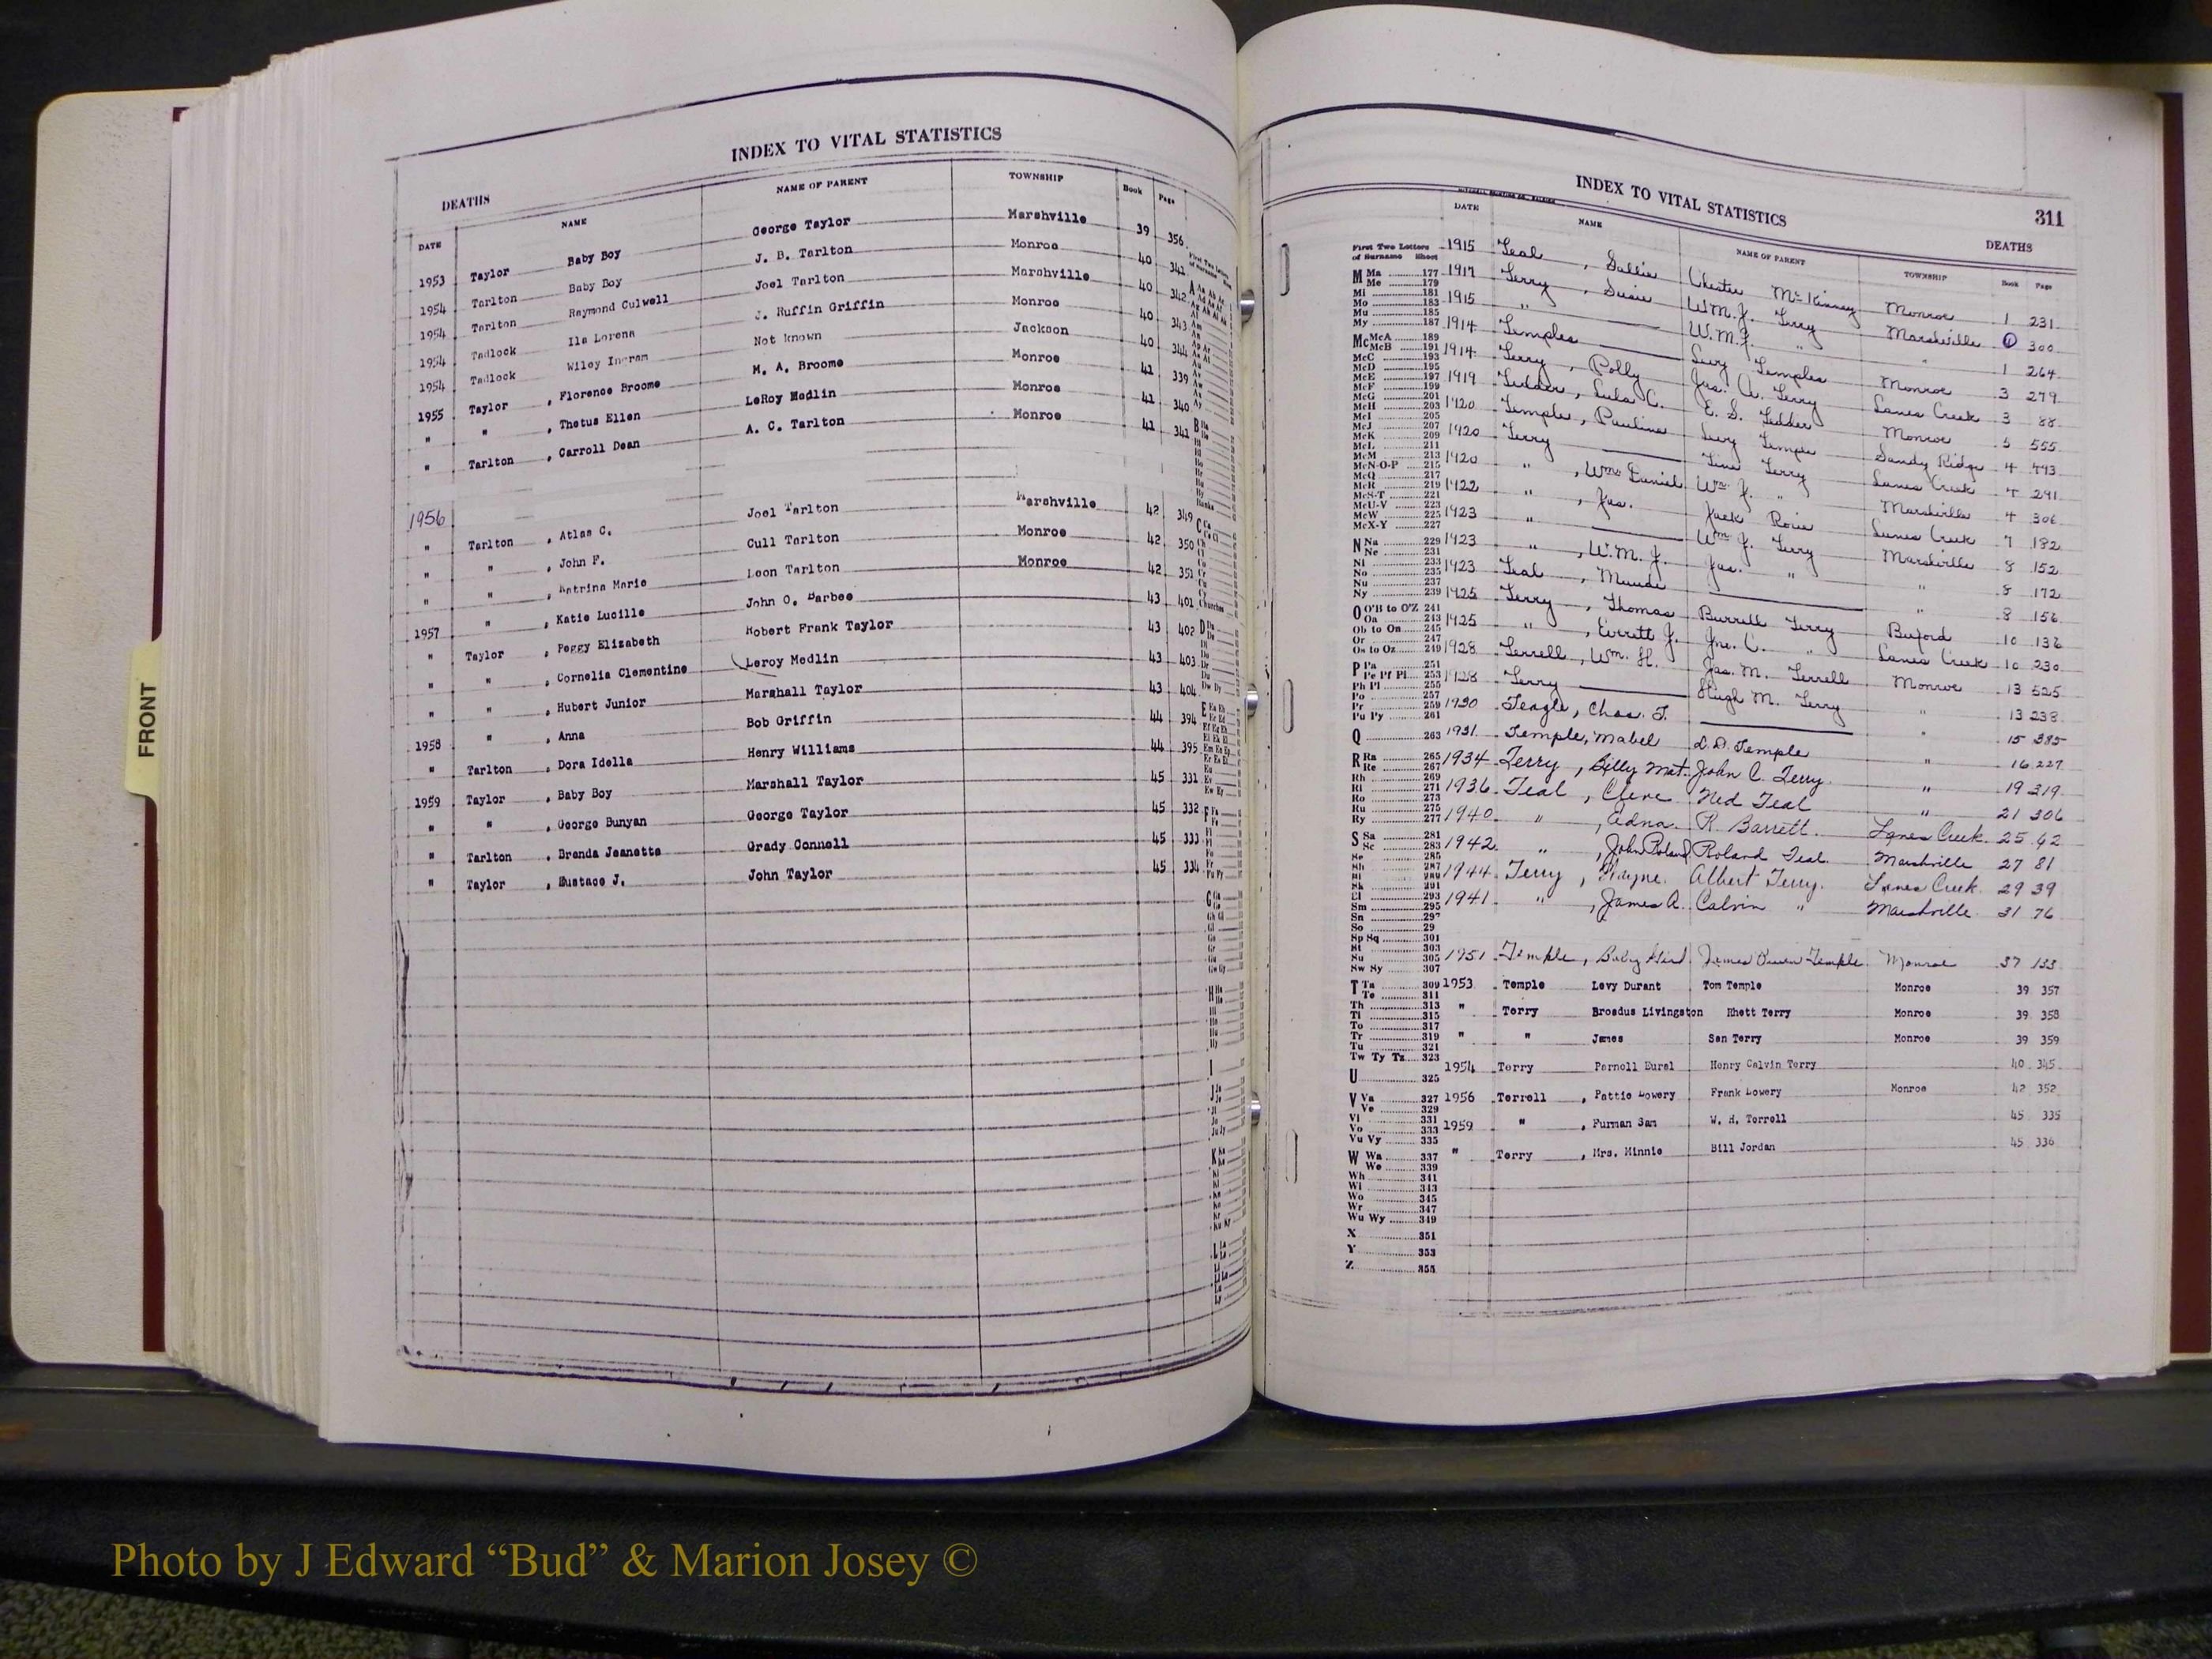 INDEX TO VITAL STATISTICS
DEATHS
DATE NAME NAME OF PARENT TOWNSHIP Book Page
1953 Taylor Baby Boy George Taylor Marshville 39 356
1954 Tarlton Baby Boy J. B. Tarlton Monroe 40 341
1954 Tarlton Raymond Culwell Joel Tarlton Marshville 40 342
1954 Tadlock Ila Lorena J. Ruffin Griffin Monroe 40 343
1954 Tadlock Wiley Ingram Not known Jackson 40 344
1955 Taylor , Florence Broome M. A. Broome Monroe 41 339
" " , Thetus Ellen LeRoy Medlin Monroe 41 340
" Tarlton , Carroll Dean A. C. Tarlton Monroe 41 341
1956
" Tarlton , Atlas C. Joel Tarlton Marshville 42 349
" " , John F. Cull Tarlton Monroe 42 350
" " , Katrina Marie Leon Tarlton Monroe 42 351
1957 " , Katie Lucille John O. Barbee 43 401
" Taylor , Peggy Elizabeth Robert Frank Taylor 43 402
" " , Cornelia Clementine Leroy Medlin 43 403
" " , Hubert Junior Marshall Taylor 43 404
1958 " , Anna Bob Griffin 44 394
" Tarlton , Dora Idella Henry Williams 44 395
1959 Taylor , Baby Boy Marshall Taylor 45 331
" " , George Bunyan George Taylor 45 332
" Tarlton , Brenda Jeanette Grady Connell 45 333
" Taylor , Eustace J. John Taylor 45 334
INDEX TO VITAL STATISTICS 311
DEATHS
DATE NAME NAME OF PARENT TOWNSHIP Book Page
First Two Letters of Surname Sheet
1915 Teal , Sallie Chester McKinney Monroe 1 231
1917 Terry , Susie W.M.J. Terry Marshville 1 300
1915 " W.M.J. " " 1 264
1914 Temples Levy Temples Monroe 3 279
1914 Terry , Polly Jas. A. Terry Lanes Creek 3 88
1919 Tedder , Lula C. E. S. Tedder Monroe 5 555
1920 Temple , Pauline Levy Temple Sandy Ridge 4 493
1920 Terry Tine Terry Lanes Creek 4 291
1920 " , Wm Daniel Wm J. " Marshville 4 306
1922 " , Jas. Jack Rorie Lanes Creek 7 182
1923 " Wm J. Terry Marshville 8 152
1923 " , W.M. J. Jas. " " 8 172
1923 Teal , Maude " 8 156
1925 Terry , Thomas Burrell Terry Buford 10 136
1925 " , Everett J. Jno. C. " Lanes Creek 10 230
1928 Terrell , Wm. H. Jas. M. Terrell Monroe 13 525
1928 Terry Hugh M. Terry " 13 238
1930 Teagle, Chas. T. " 15 385
1931 Temple, Mabel L. D. Temple " 16 227
1934 Terry , Billy Mat. John C. Terry " 19 319
1936 Teal , Cleve Ned Teal " 21 306
1940 " , Edna R. Barrett Lanes Creek 25 62
1942 " , John Roland Roland Teal Marshville 27 81
1944 Terry , Wayne Albert Terry Lanes Creek 29 39
1941 " , James A. Calvin " Marshville 31 76
1951 Temple , Baby Girl James Owen Temple Monroe 37 133
1953 Temple Levy Durant Tom Temple Monroe 39 357
" Terry Broadus Livingston Rhett Terry Monroe 39 358
" " James San Terry Monroe 39 359
1954 Terry Parnell Eural Henry Calvin Terry 40 345
1956 Terrell , Pattie Lowery Frank Lowery Monroe 42 352
1959 " , Furman Sam W. H. Terrell 45 335
" Terry , Mrs. Minnie Bill Jordan 45 336
M Ma 177
Me 179
Mi 181
Mo 183
Mu 185
My 187
Mc McA 189
McB 191
McC 193
McD 195
McE 197
McF 199
McG 201
McH 203
McI 205
McJ 207
McK 209
McL 211
McM 213
McN-O-P 215
McQ 217
McR 219
McS-T 221
McU-V 223
McW 225
McX-Y 227
N Na 229
Ne 231
Ni 233
No 235
Nu 237
Ny 239
O O'B to O'Z 241
Oa 243
Ob to On 245
Or 247
Os to Oz 249
P Pa 251
Pe Pf Pi 253
Ph Pl 255
Po 257
Pr 259
Pu Py 261
Q 263
R Ra 265
Re 267
Rh 269
Ri 271
Ro 273
Ru 275
Ry 277
S Sa 281
Sc 283
Se 285
Sh 287
Sm 295
Sn 297
So 29
Sp Sq 301
St 303
Su 305
Sw Sy 307
T Ta 309
Te 311
Th 313
Ti 315
To 317
Tr 319
Tu 321
Tw Ty Tz 323
U 325
V Va 327
Ve 329
Vi 331
Vo 333
Vu Vy 335
W Wa 337
We 339
Wh 341
Wi 343
Wo 345
Wr 347
Wu Wy 349
X 351
Y 353
Z 355
FRONT
Photo by J Edward “Bud” & Marion Josey ©